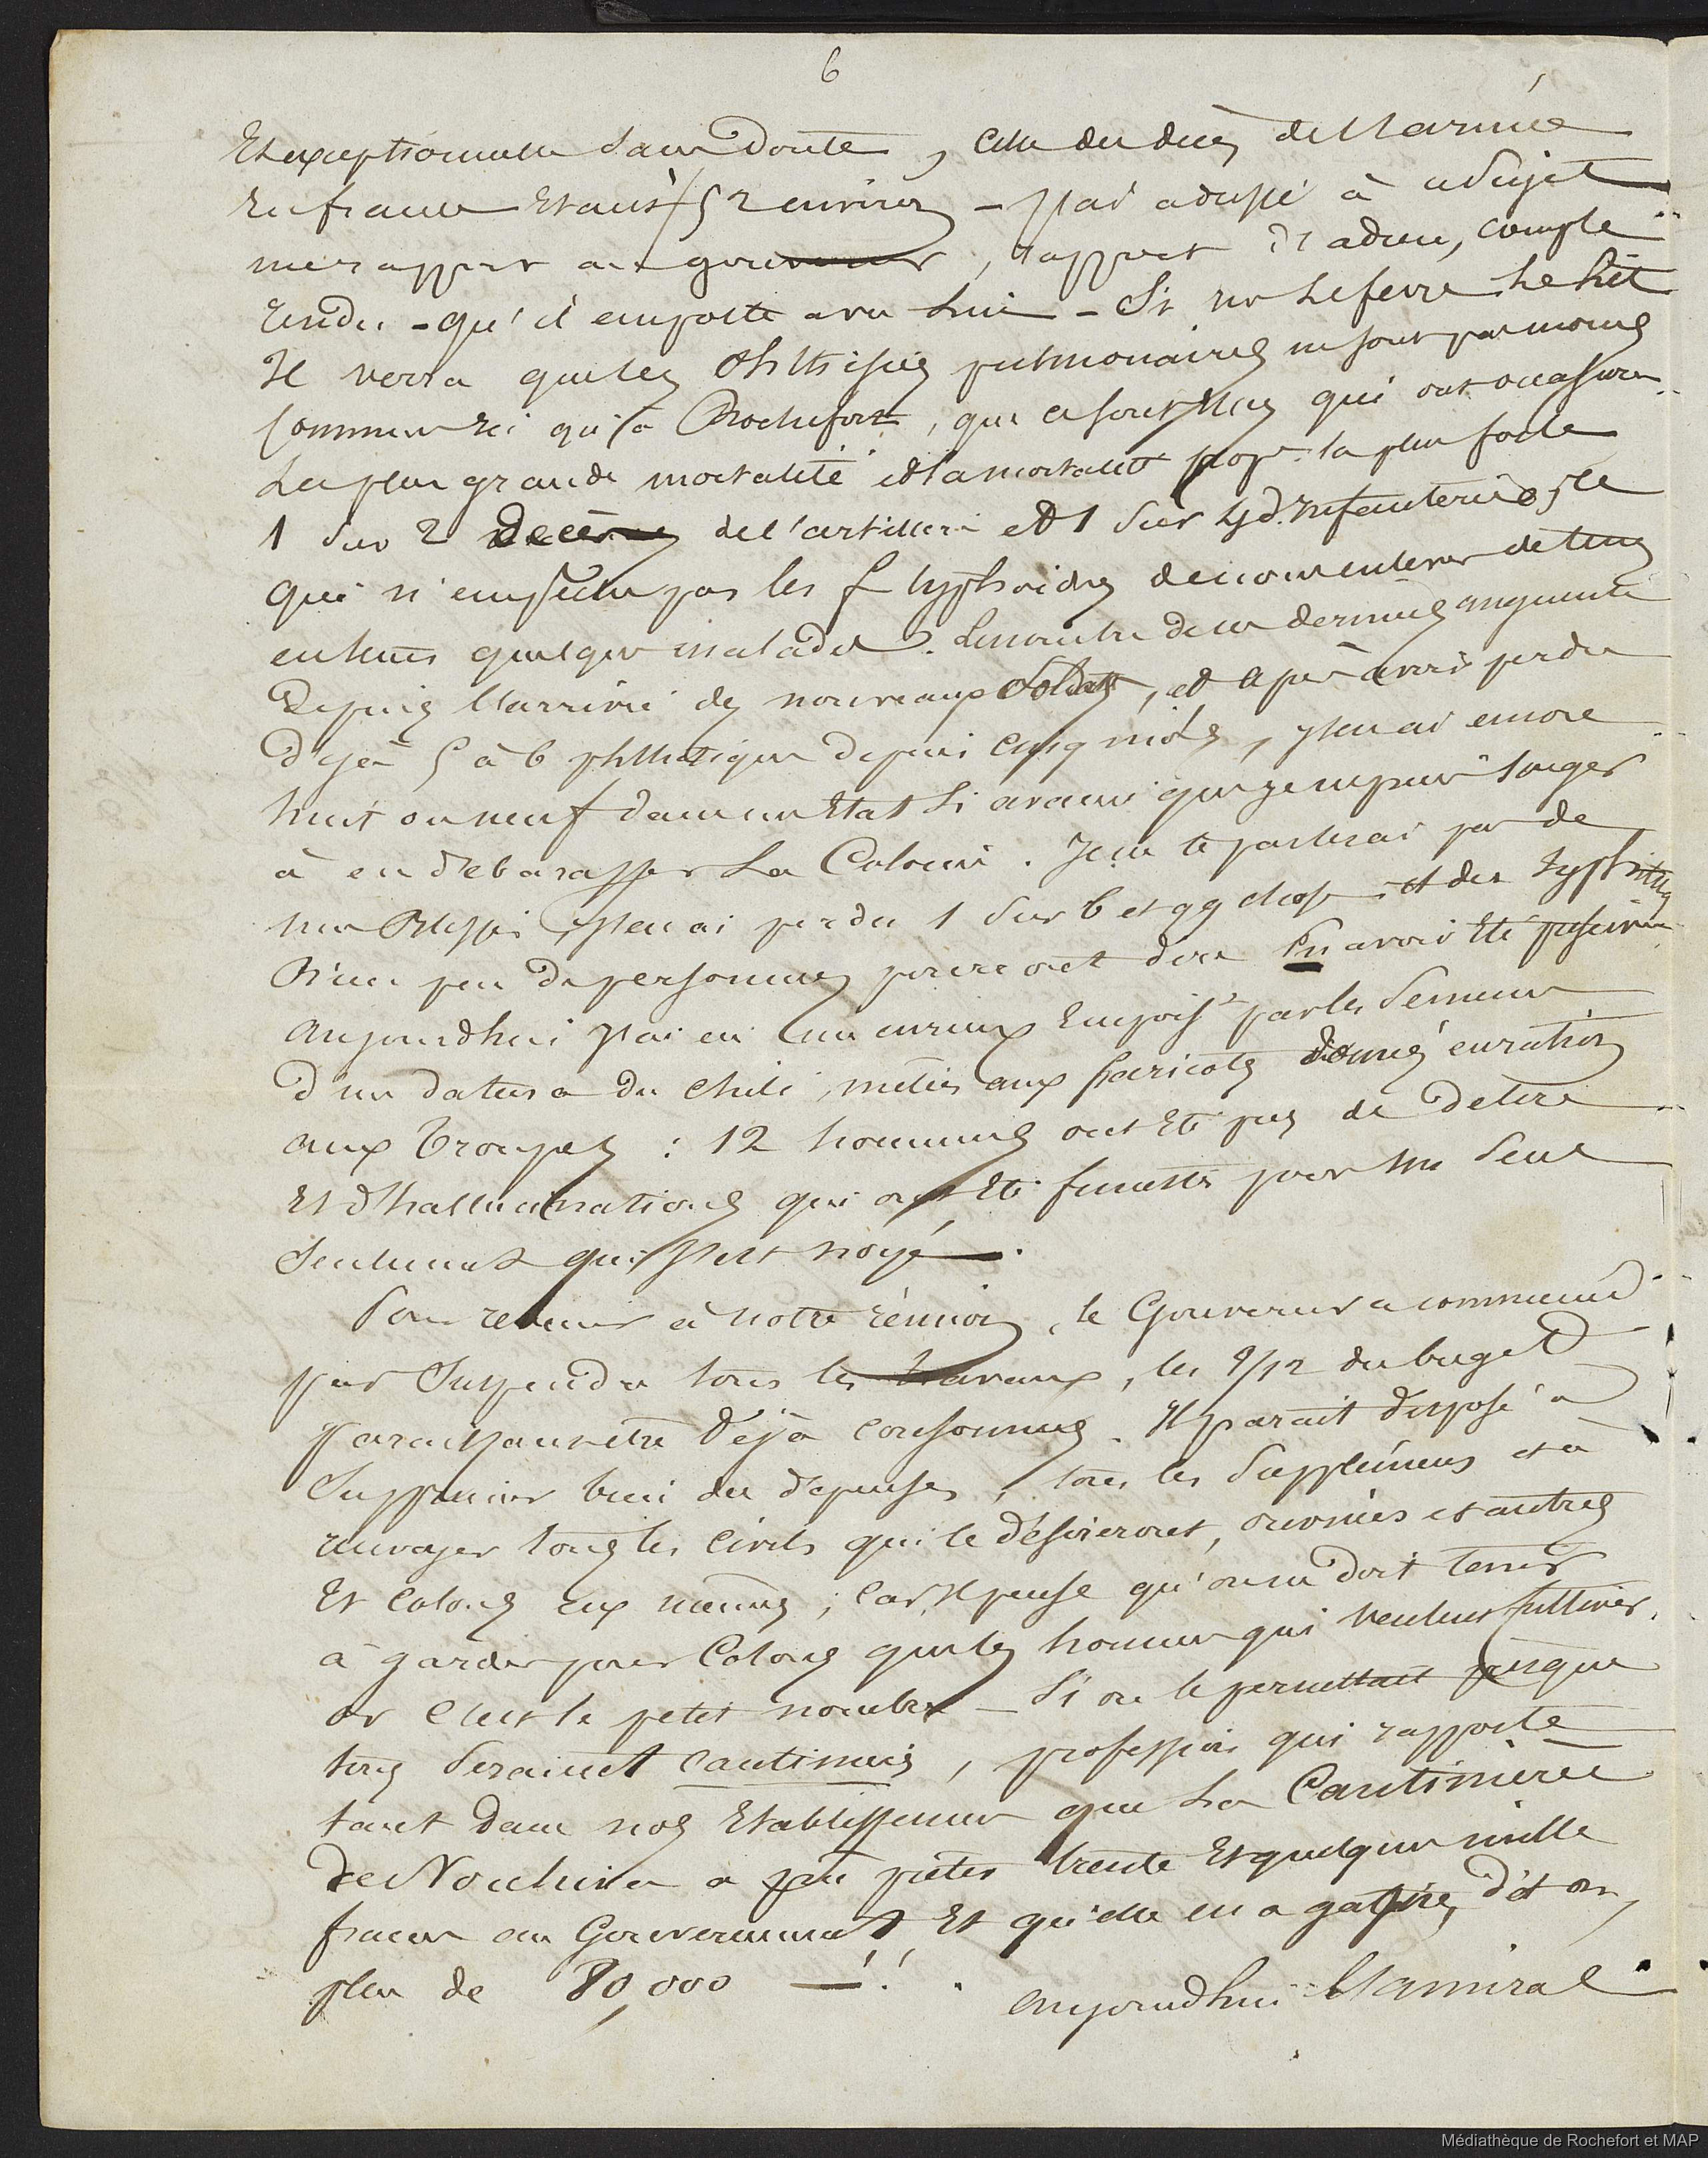 6
Et exceptionnelle sans Doute, celle des décès de l'armée
En france Etant 1/52 environ - j'ai adressé à ce sujet
mes rapport au gouverneur, rapport d'adieu, compte
rendu - qu'il emporte avec lui - Si mr Lefevre Le lit
Il verra que les Phthisies pulmonaires ne sont pas moins
communes ici qu'à Rochefort, que ce sont elles qui ont occasionné
La plus grande mortalité et la mortalité prop. la plus forte
1 sur 2 de l'artillerie et 1 sur 4 d'infanterie, ce
qui n'empêche pas les f typhoides de nous enlever de tems
en tems quelques malades. Le nombre de ces derniers augmente
Depuis l'arrivée des nouveaux soldats, et après avoir perdu
Déjà 5 à 6 phthisiques depuis cinq mois, j'en ai encore
huit ou neuf dans un Etat si avancé que je ne puis songer
à en débarasser La Colonie. Je ne te parlerai pas de
mes j'en ai perdu 1 sur 6 et qq chose et des typhites
Bien peu de personnes pourront dire En avoir été
Aujourdhui j'ai eu un curieux Empois.t par les semences
d'un datura du chili, mêlées aux haricots donnés en ration
aux troupes : 12 hommes ont Eté pris de delire
Et d'hallucinations qui ont Eté funestes pour un seul
Seulement qui s'est noyé.
Pour revenir à notre réunion, le Gouverneur a commencé
par suspendre tous les travaux, les 9/12 du buget
paraissant être déjà consommés. Il paraît disposé à
Supprimer bien des dépenses, tous les suppléments et à
renvoyer tous les civils qui le désireront, ouvriers et autres
Et colons eux mêmes; car Il pense qu'on ne doit tenir
à garder pour Colons que les hommes qui veulent cultiver.
or c'est le petit nombre - Si on le permettait presque
tous seraient cantiniers, profession qui rapporte
tant dans nos Etablissemens que La Cantinière
De Noukiva a pu prêter trente Et quelques mille
francs au Gouvernement Et qu'elle en a gagné, dit on,
plus de 80,000 —!. aujourdhui l'amiral
Médiathèque de Rochefort et MAP